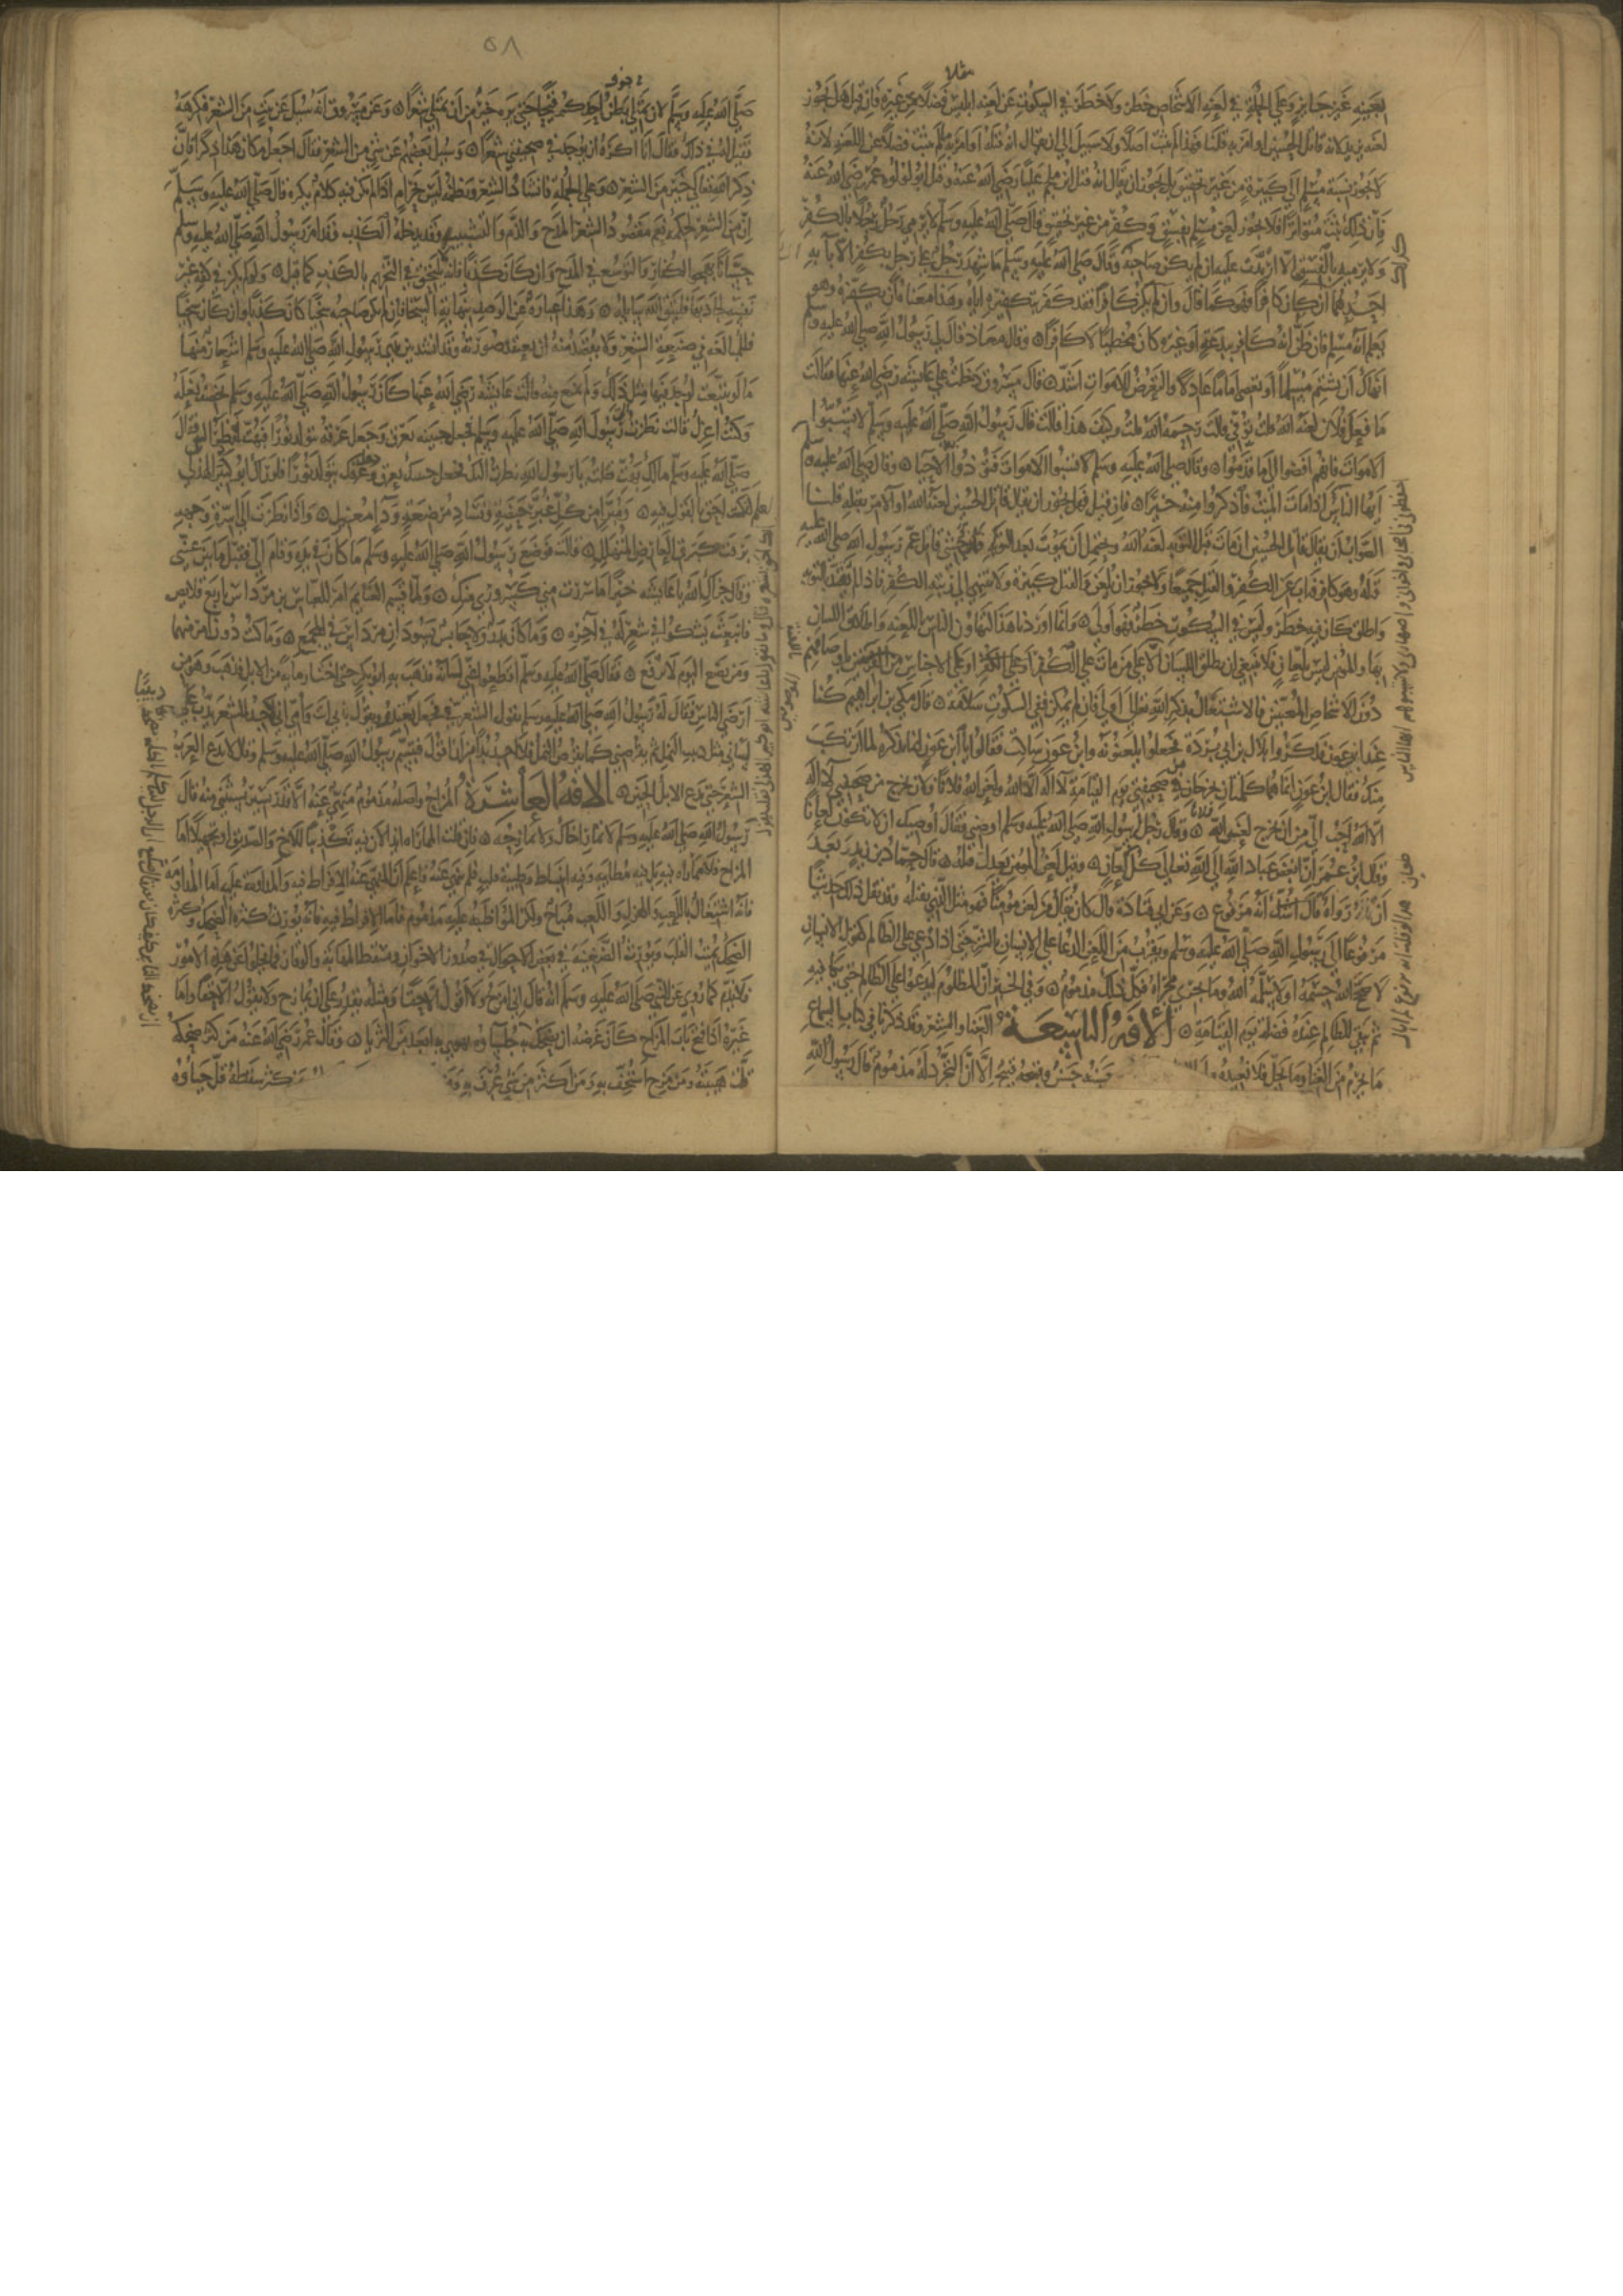 بعينه غير جايز وعلى الجملة في لعنة الاشخاص خطر ولا خطر في السكوت عن لعنة ابليس فضلا عن غيره فان قيل هل يجوز
لعنة يزيد لانه قاتل الحسين او امر به قلنا فهذا لم يثبت اصلا ولا سبيل الى ان يقال انه قتله او امر به ما لم يثبت فضلا عن اللعنة لانه
لا يجوز نسبة مسلم الى كبيرة من غير تحقيق بل يجوز ان يقال انه قتل ابن ملجم عليا رضي الله عنه وقتل ابو لؤلؤة عمر رضي الله عنه
فان ذلك ثبت متواترا فلا يجوز لعن مسلم بفسق وكفر من غير تحقيق قال صلى الله عليه وسلم لا يرمي رجل رجلا بالكفر
ولا يرميه بالفسق الا ارتدت عليه ان لم يكن صاحبه وقال صلى الله عليه وسلم ما شهد رجل على رجل بكفر الا باء به
احدهما ان كان كافرا فهو كما قال وان لم يكن كافرا فقد كفر بتكفيره اياه وهذا معناه ان يكفره وهو
يعلم انه مسلم فان ظن انه كافر ببدعة او غيره كان مخطيا لا كافرا وقال معاذ قال لي رسول الله صلى الله عليه وسلم
انهاك ان تشتم مسلما او تعصي اماما عادلا والتعرض للاموات اشد قال مسروق دخلت على عايشة رضي الله عنها فقالت
ما فعل فلان لعنه الله قلت توفي قالت رحمه الله قلت وكيف هذا قالت قال رسول الله صلى الله عليه وسلم لا تسبوا
الاموات فانهم افضوا الى ما قدموا وقال صلى الله عليه وسلم لا تسبوا الاموات فتؤذوا به الاحيا وقال صلى الله عليه وسلم
ايها الناس اذا مات الميت فاذكروا منه خيرا فان قيل فهل يجوز ان يقال قاتل الحسين لعنه الله او الامر بقتله قلنا
الصواب ان يقال قاتل الحسين ان مات قبل التوبة لعنه الله ويحتمل ان يموت بعد التوبة فان وحشي قاتل عم رسول الله صلى الله عليه
قتله وهو كافر فتاب عن الكفر والقتل جميعا ولا يجوز ان يلعن والقتل كبيرة ولا تنتهي الى رتبة الكفر فاذا لم يقيد بالتوبة
واطلق كان فيه خطر وليس في السكوت خطر فهو اولى وانما اوردنا هذا لتهاون الناس باللعنة واطلاق اللسان
بها والمؤمن ليس بلعان فلا ينبغي ان يطلق اللسان الا على من مات على الكفر او على الاجناس
دون الاشخاص المعينين فالاشتغال بذكر الله تعالى اولى فان لم يكن ففي السكوت سلامة قال مكي بن ابراهيم كنا
عند ابن عون فذكروا بلال بن ابي بردة فجعلوا يلعنونه وابن عون ساكت فقالوا يا ابن عون انما نذكره لما ارتكب
منك فقال ابن عون انما هما كلمتان تخرجان من صحيفتي يوم القيامة لا اله الا الله ولعن الله فلانا فلان تخرج من صحيفتي لا اله
الا الله احب الي من ان يخرج لعن الله فلانا وقال رجل لرسول الله صلى الله عليه وسلم اوصني فقال اوصيك ان لا تكون لعانا
وقال ابن عمر ان ابغض عباد الله الى الله تعالى كل لعان وقيل لعن المؤمن يعدل قتله قال حماد بن زيد بعد
ان رواه قال انه مرفوع وعن ابي قتادة قال كان يقال من لعن مؤمنا فهو مثل ان يقتله وقد نقل ذلك حديثا
مرفوعا الى رسول الله صلى الله عليه وسلم ويقرب من اللعن الدعاء على الانسان بالشر حتى اذا دعي على الظالم كقول الانسان
لا صحح الله جسمه او لا سلمه الله وما يجري مجراه فكل ذلك مذموم وفي الخبر ان المظلوم ليدعو على الظالم حتى يكافيه
ثم يبقى للظالم عنده فضلة يوم القيامة الافة التاسعة الغنا والشعر وقد ذكرنا في كتاب السماع
ما يحرم من الغنا وما يحل فلا نعيده فحسنه حسن وقبيحه قبيح الا ان التجرد له مذموم قال رسول الله
٥٨
صلى الله عليه وسلم لان يمتلي بطن احدكم قيحا حتى يريه خير من ان يمتلي شعرا وعن مسروق انه سئل عن بيت من الشعر فكرهه
فقيل له في ذلك فقال انا اكره ان يوجد في صحيفتي شعرا وسئل بعضهم عن شي من الشعر فقال اجعل مكان هذا ذكرا فان
ذكر الله تعالى خير من الشعر وعلى الجملة فانشاد الشعر ونظمه ليس بحرام اذا لم يكن فيه كلام يكره قال صلى الله عليه وسلم
ان من الشعر لحكمة نعم مقصود الشعر المدح والذم والتشبيب وقد يدخله الكذب وقد امر رسول الله صلى الله عليه وسلم
حسانا بهجو الكفار والتوسع في المدح وان كان كذبا فانه لا يلحق في التحريم بالكذب كما قيل ولو لم يكن في كفه غير
نفسه لجاد بها فليتق الله سايله وهذا عبارة عن الوصف بنهاية السخا فان لم يكن صاحبه سخيا كان كذبا وان كان سخيا
فالمبالغة في صنعة الشعر ولا يقصد منه ان يعتقد صورته وقد انشد بين يدي رسول الله صلى الله عليه وسلم اشعار منها
ما لو تتبعت لوجد فيها مثل ذلك ولم يمنع منه قالت عايشة رضي الله عنها كان رسول الله صلى الله عليه وسلم يخصف نعله
وكنت اغزل قالت نظرت الى رسول الله صلى الله عليه وسلم فجعل جبينه يعرق وجعل عرقه يتولد نورا فبهت فنظر الي فقال
صلى الله عليه وسلم مالك بهت فقلت يا رسول الله نظرت اليك فجعل جبينك يعرق وجعل عرقك يتولد نورا فلو راك ابو كبير الهذلي
لعلم انك احق بقوله فيه ومبرا من كل غبر حيضة وفساد مرضعة ودا مغيل واذا نظرت الى اسرة وجهه
برقت كبرق العارض المتهلل قالت فوضع رسول الله صلى الله عليه وسلم ما كان في يده وقام الي فقبل ما بين عيني
وقال جزاك الله يا عايشة خيرا ما سررت مني كسروري منك ولما قسم الغنايم امر للعباس بن مرداس باربع قلايص
فانبعث يشكوا في شعر له في اخره وما كان بدر ولا حابس يسودان مرداس في المجمع وما كنت دون امر منهما
ومن تضع اليوم لا يرفع فقال صلى الله عليه وسلم اقطعوا عني لسانه فذهب به ابو بكر حتى اختار ماية من الابل فذهب وهو من
ارضى الناس فقال له رسول الله صلى الله عليه وسلم تقول الشعر في فجعل يعتذر ويقول بابي انت وامي اني لاجد للشعر دبيبا على
لساني مثل دبيب النمل ثم يقرصني كما يقرص النمل فلا اجد بدا من ان اقول فتبسم رسول الله صلى الله عليه وسلم وقال لا تدع العرب
الشعر حتى تدع الابل الحنين الافة العاشرة المزاح واصله مذموم منهي عنه الا قدر يسير يستثنى منه قال
رسول الله صلى الله عليه وسلم لا تمار اخاك ولا تمازحه فان قلت المماراة ايذا لان فيه تكذيبا للاخ والصديق او تجهيلا اما
المزاح فلا ايذاء فيه بل فيه مطايبة وفيه انبساط وطيبة قلب فلم نهي عنه فاعلم ان النهي عنه الافراط فيه والمداومة عليه اما المداومة
فانه اشتغال باللعب والهزل واللعب مباح ولكن المواظبة عليه مذموم فاما الافراط فيه فانه يورث كثرة الضحك وكثرة
الضحك تميت القلب ويورث الضغينة في بعض الاحوال في صدور الاخوان ويسقط المهابة والوقار فما يخلوا عن هذه الامور
فلا يذم كما روي عن النبي صلى الله عليه وسلم انه قال اني لامزح ولا اقول الا حقا ومثله يقدر على ان يمازح ولا يقول الا حقا واما
غيره اذا فتح باب المزاح كان غرضه ان يضحك به جلساؤه يهوي به ابعد من الثريا وقال عمر رضي الله عنه من كثر ضحكه
قلت هيبته ومن مزح استخف به ومن اكثر من شي عرف به ومن كثر سقطه قل حياؤه